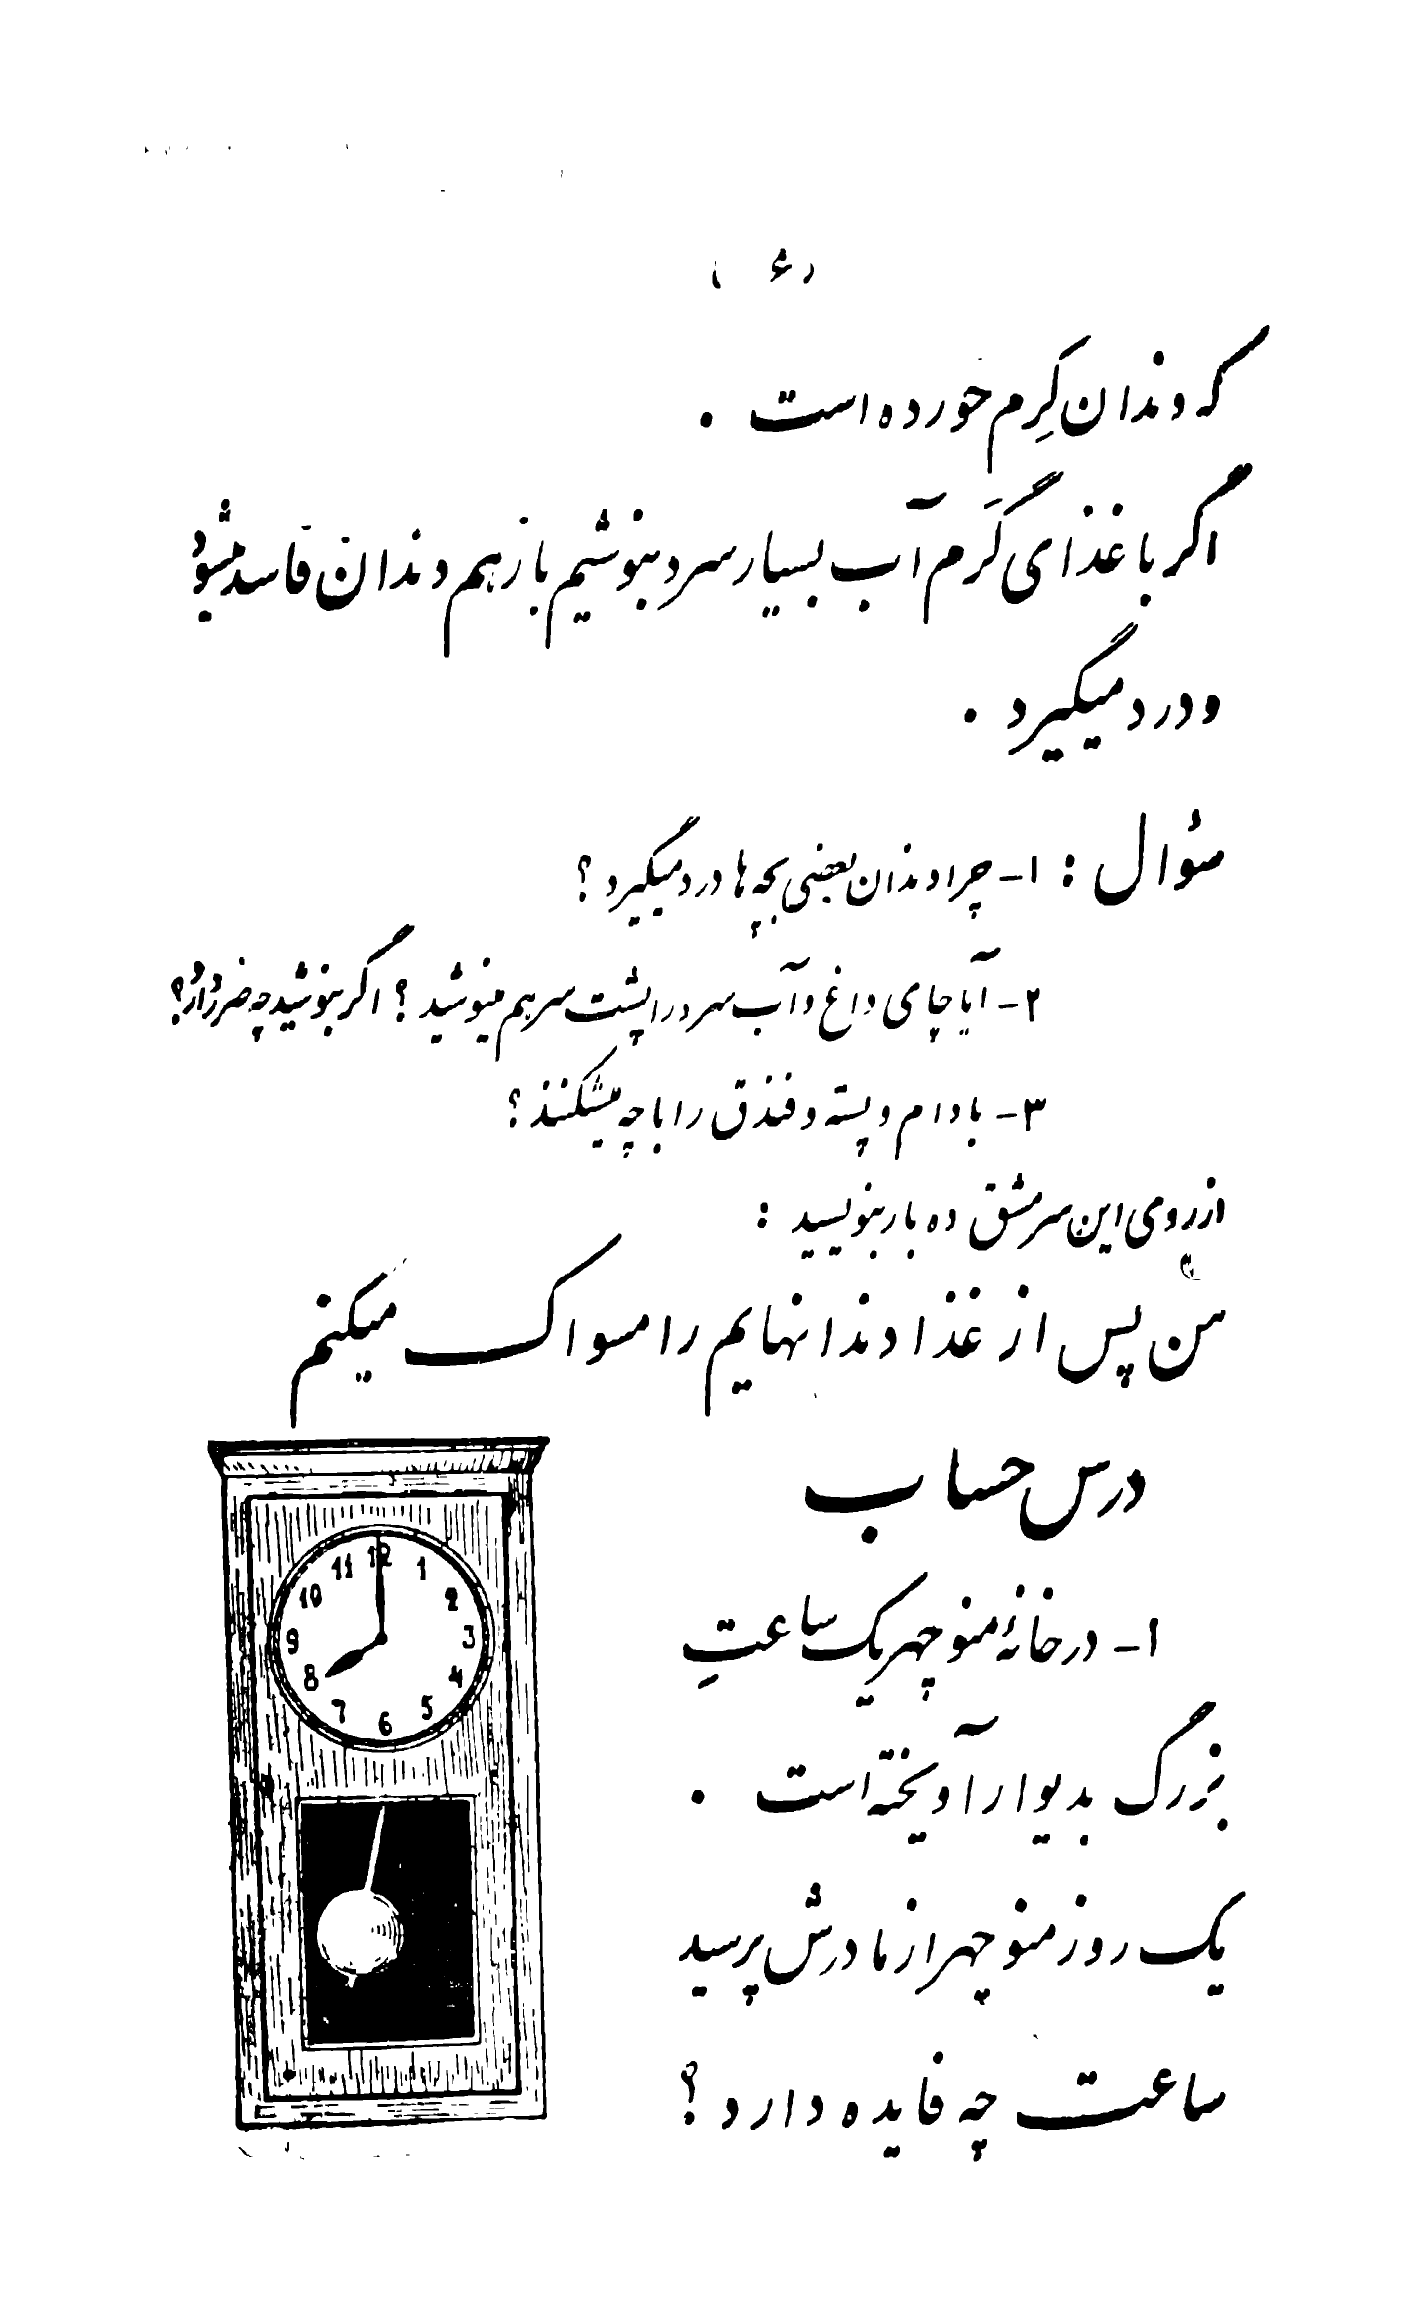 (۶)
که دندان کِرم خورده است .
اگر با غذای گَرم آب بسیار سرد بنوشیم باز هم دندان فاسد میشود
و درد میگیرد .
سؤال : ۱- چرا دندان بعضی بچه ها درد میگیرد ؟
۲- آیا چای داغ و آب سرد را پشت سر هم مینوشید ؟ اگر بنوشید چه ضرر دارد؟
۳- بادام و پسته و فندق را با چه میشکنند ؟
از روی این سرمشق ده بار بنویسید :
من پس از غذا دندانهایم را مسواک میکنم
درس حساب
۱- در خانهٔ منوچهر یک ساعتِ
بزرگ بدیوار آویخته است .
یک روز منوچهر از مادرش پرسید
ساعت چه فایده دارد ؟
11 12 1
10 2
9 3
8 4
7 6 5